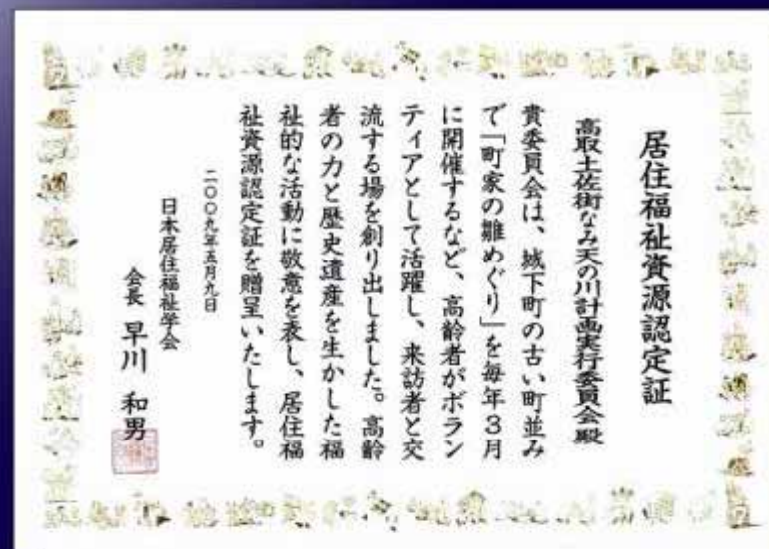 居住福祉資源認定証
高取土佐街なみ天の川計画実行委員会殿
貴委員会は、城下町の古い町並み
で「町家の雛めぐり」を毎年3月
に開催するなど、高齢者がボラン
ティアとして活躍し、来訪者と交
流する場を創り出しました。高齢
者の力と歴史遺産を生かした福
祉的な活動に敬意を表し、居住福
祉資源認定証を贈呈いたします。
二〇〇九年五月九日
日本居住福祉学会
会長 早川 和男